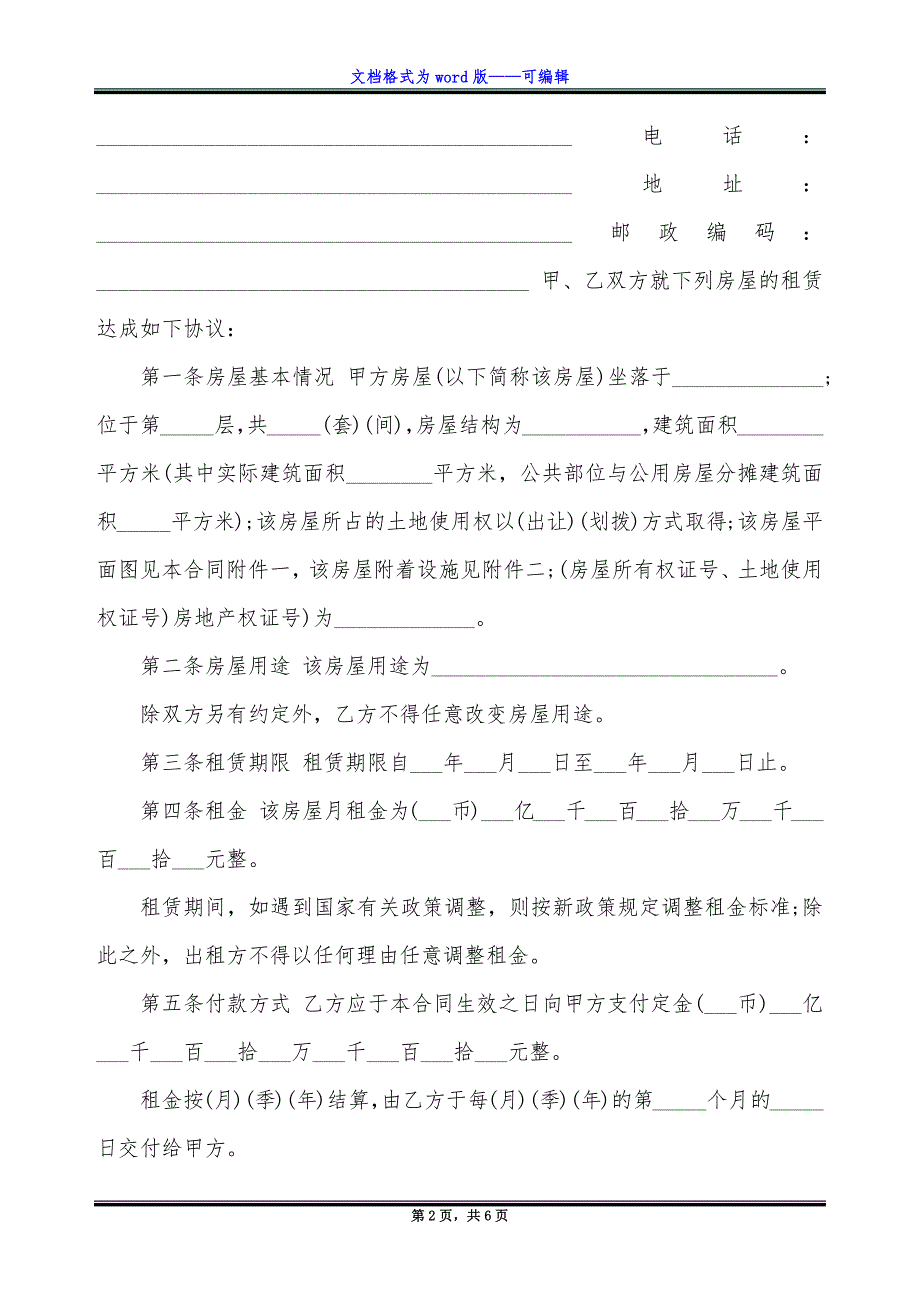 文档格式为 word 版——可编辑
____________________________________________ 电话：
____________________________________________ 地址：
____________________________________________ 邮政编码：
________________________________________ 甲、乙双方就下列房屋的租赁
达成如下协议：
第一条房屋基本情况 甲方房屋(以下简称该房屋)坐落于______________;
位于第_____层,共_____(套)(间),房屋结构为___________,建筑面积________
平方米(其中实际建筑面积________平方米，公共部位与公用房屋分摊建筑面
积_____平方米);该房屋所占的土地使用权以(出让)(划拨)方式取得;该房屋平
面图见本合同附件一，该房屋附着设施见附件二;(房屋所有权证号、土地使用
权证号)房地产权证号)为_____________。
第二条房屋用途 该房屋用途为________________________________。
除双方另有约定外，乙方不得任意改变房屋用途。
第三条租赁期限 租赁期限自___年___月___日至___年___月___日止。
第四条租金 该房屋月租金为(___币)___亿___千___百___拾___万___千___
百___拾___元整。
租赁期间，如遇到国家有关政策调整，则按新政策规定调整租金标准;除
此之外，出租方不得以任何理由任意调整租金。
第五条付款方式 乙方应于本合同生效之日向甲方支付定金(___币)___亿
___千___百___拾___万___千___百___拾___元整。
租金按(月)(季)(年)结算,由乙方于每(月)(季)(年)的第_____个月的_____
日交付给甲方。
第 2 页，共 6 页